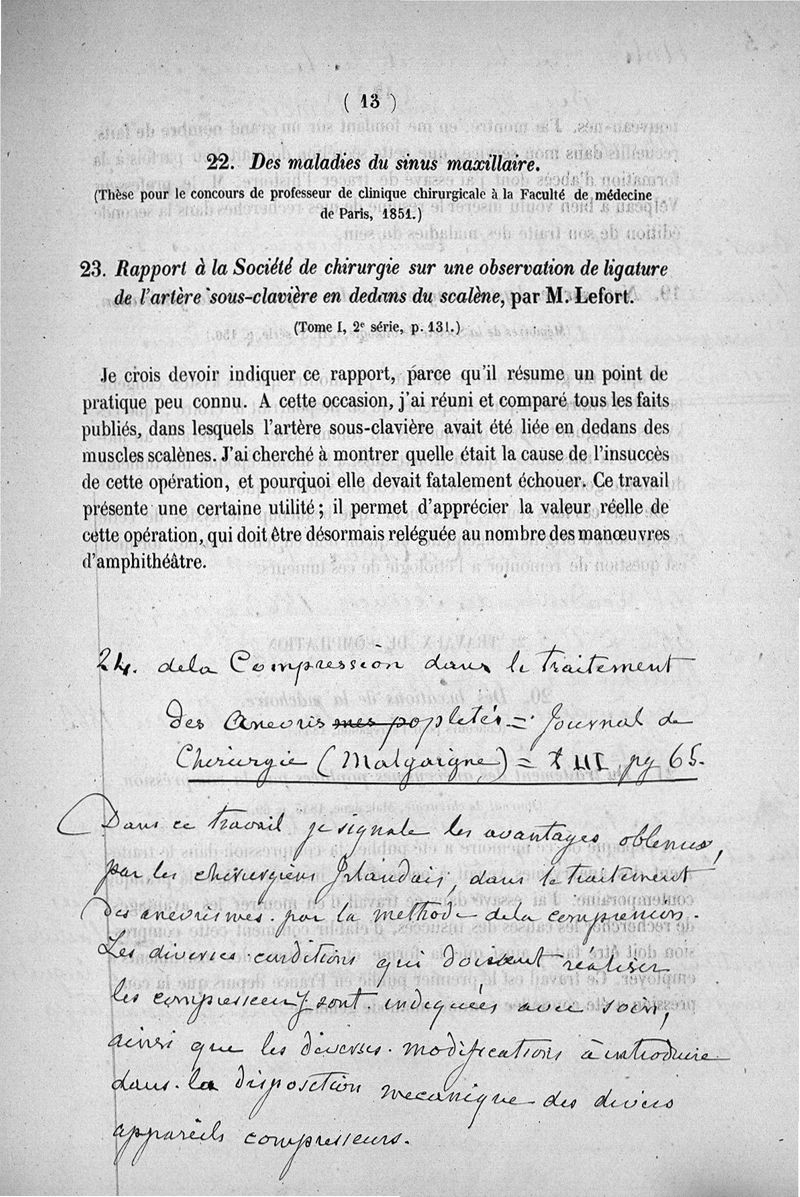 ( 13 )
22. Des maladies du sinus maxillaire.
(Thèse pour le concours de professeur de clinique chirurgicale à la Faculté de médecine
de Paris, 1851.)
23. Rapport à la Société de chirurgie sur une observation de ligature
de l'artère sous-clavière en dedans du scalène, par M. Lefort.
(Tome I, 2e série, p. 131.)
Je crois devoir indiquer ce rapport, parce qu'il résume un point de
pratique peu connu. A cette occasion, j'ai réuni et comparé tous les faits
publiés, dans lesquels l'artère sous-clavière avait été liée en dedans des
muscles scalènes. J'ai cherché à montrer quelle était la cause de l'insuccès
de cette opération, et pourquoi elle devait fatalement échouer. Ce travail
présente une certaine utilité ; il permet d'apprécier la valeur réelle de
cette opération, qui doit être désormais reléguée au nombre des manœuvres
d'amphithéâtre.
24. dela Compression dans le traitement
des anevrismes poplités = Journal de
Chirurgie (Malgaigne) = t III pg 65.
Dans ce travail je signale les avantages obtenus,
par les chirurgiens Irlandais, dans le traitement
des anevrismes. par la methode dela compression.
Les diverses conditions qui doivent réaliser
les compresseurs sont indiquées avec soin,
ainsi que les diverses modifications à introduire
dans la disposition mecanique des divers
appareils compresseurs.